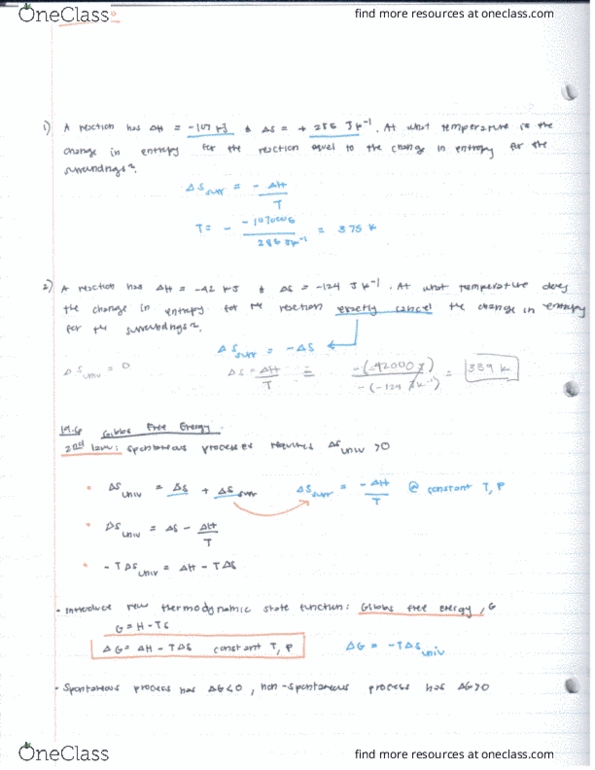 OneClass
find more resources at oneclass.com
1) A reaction has ΔH = -107 kJ & ΔS = + 286 J K⁻¹. At what temperature is the
change in entropy for the reaction equal to the change in entropy for the
surroundings?
ΔS surr = - ΔH / T
T = - -107000J / 286 JK⁻¹ = 375 K
2) A reaction has ΔH = -42 kJ & ΔS = -124 J K⁻¹. At what temperature does
the change in entropy for the reaction exactly cancel the change in entropy
for the surroundings?
ΔS surr = -ΔS
ΔS univ = 0
ΔS = ΔH / T = -(-42000 J) / -(-124 J K⁻¹) = 339 K
Gibbs Free Energy
2nd law: spontaneous processes requires ΔS univ >0
• ΔS univ = ΔS + ΔS surr
ΔS surr = -ΔH / T @ constant T, P
• ΔS univ = ΔS - ΔH / T
• -TΔS univ = ΔH - TΔS
• Introduce new thermodynamic state function: Gibbs free energy, G
G = H - TS
ΔG = ΔH - TΔS constant T, P
ΔG = -TΔS univ
• Spontaneous process has ΔG<0, non-spontaneous process has ΔG>0
OneClass
find more resources at oneclass.com